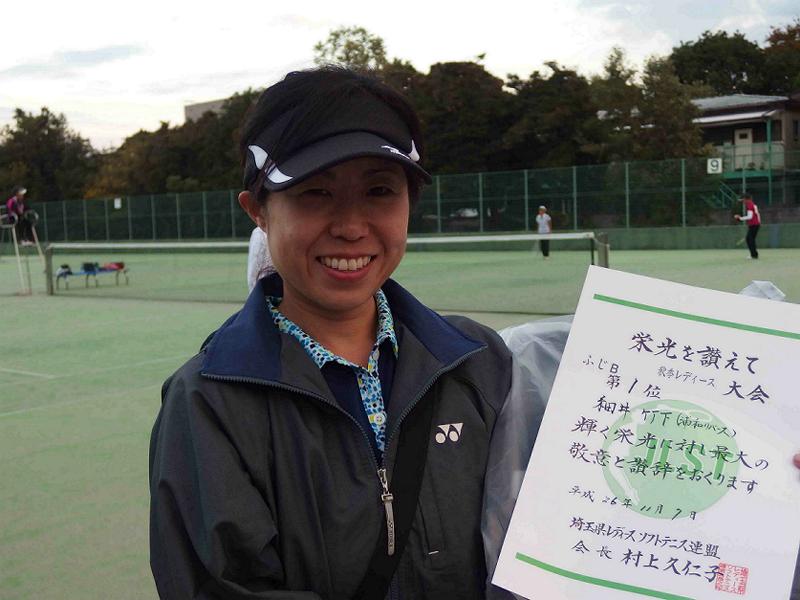 9
栄光を讃えて
秋季レディース 大会
ふじ日
第1位
細井 竹下(浦和リバース)
輝く栄光に対し最大の
敬意と讃辞をおくります
平成26年11月7日
埼玉県レディースソフトテニス連盟
会長 村上久仁子